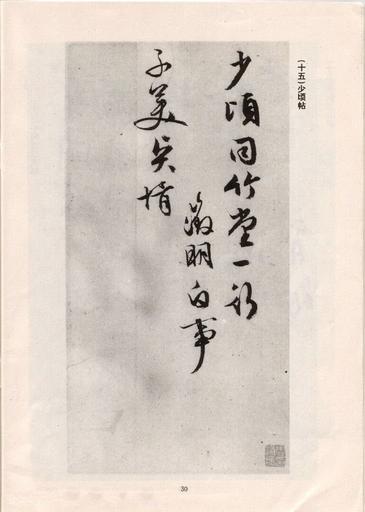 (十五)少頃帖
少頃同竹堂一行
徵明白事
子美
情
30